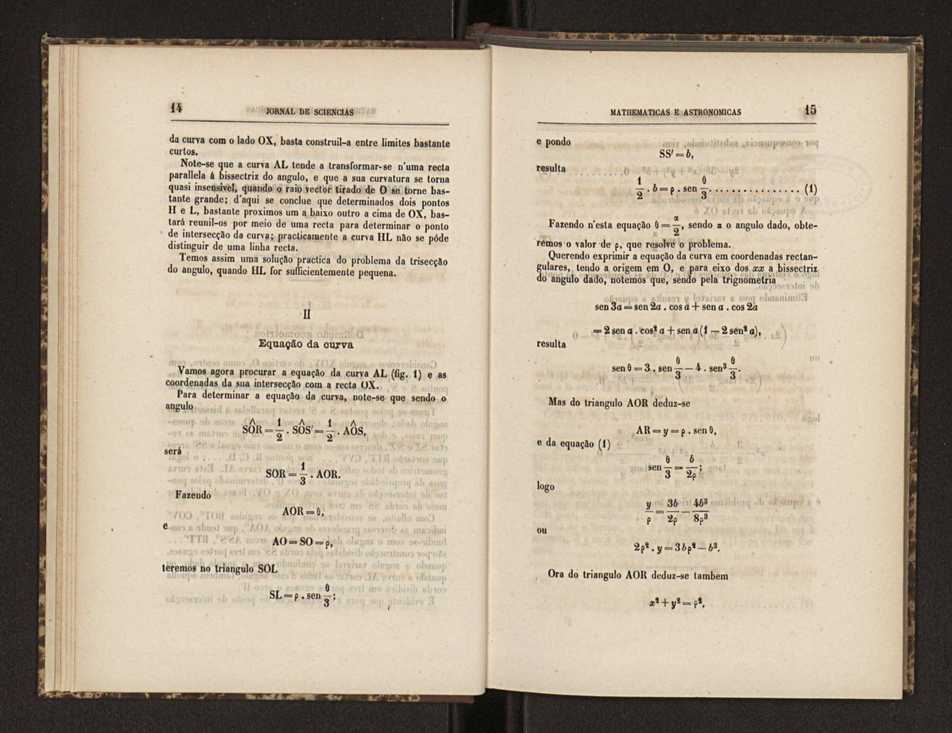 14 JORNAL DE SCIENCIAS
da curva com o lado OX, basta construil-a entre limites bastante
curtos.
Note-se que a curva AL tende a transformar-se n'uma recta
parallela á bissectriz do angulo, e que a sua curvatura se torna
quasi insensivel, quando o raio vector tirado de O se torne bas-
tante grande; d'aqui se conclue que determinados dois pontos
H e L, bastante proximos um a baixo outro a cima de OX, bas-
tará reunil-os por meio de uma recta para determinar o ponto
de intersecção da curva; practicamente a curva HL não se póde
distinguir de uma linha recta.
Temos assim uma solução practica do problema da trisecção
do angulo, quando HL for sufficientemente pequena.
II
Equação da curva
Vamos agora procurar a equação da curva AL (fig. 1) e as
coordenadas da sua intersecção com a recta OX.
Para determinar a equação da curva, note-se que sendo o
angulo
SÔR = 1/2 . SÔS' = 1/2 . AÔS,
será
SOR = 1/3 . AOR.
Fazendo
AOR = θ,
e
AO = SO = ρ,
teremos no triangulo SOL
SL = ρ . sen θ/3;
MATHEMATICAS E ASTRONOMICAS 15
e pondo
SS' = b,
resulta
1/2 . b = ρ . sen θ/3 . . . . . . . . . . . . . . . (1)
Fazendo n'esta equação θ = α/2, sendo α o angulo dado, obte-
remos o valor de ρ, que resolve o problema.
Querendo exprimir a equação da curva em coordenadas rectan-
gulares, tendo a origem em O, e para eixo dos xx a bissectriz
do angulo dado, notemos que, sendo pela trignometria
sen 3a = sen 2a . cos a + sen a . cos 2a
= 2 sen a . cos² a + sen a (1 — 2 sen² a),
resulta
sen θ = 3 . sen θ/3 — 4 . sen³ θ/3.
Mas do triangulo AOR deduz-se
AR = y = ρ . sen θ,
e da equação (1)
sen θ/3 = b/2ρ;
logo
y/ρ = 3b/2ρ — 4b³/8ρ³
ou
2ρ² . y = 3bρ² — b³.
Ora do triangulo AOR deduz-se tambem
x² + y² = ρ²,